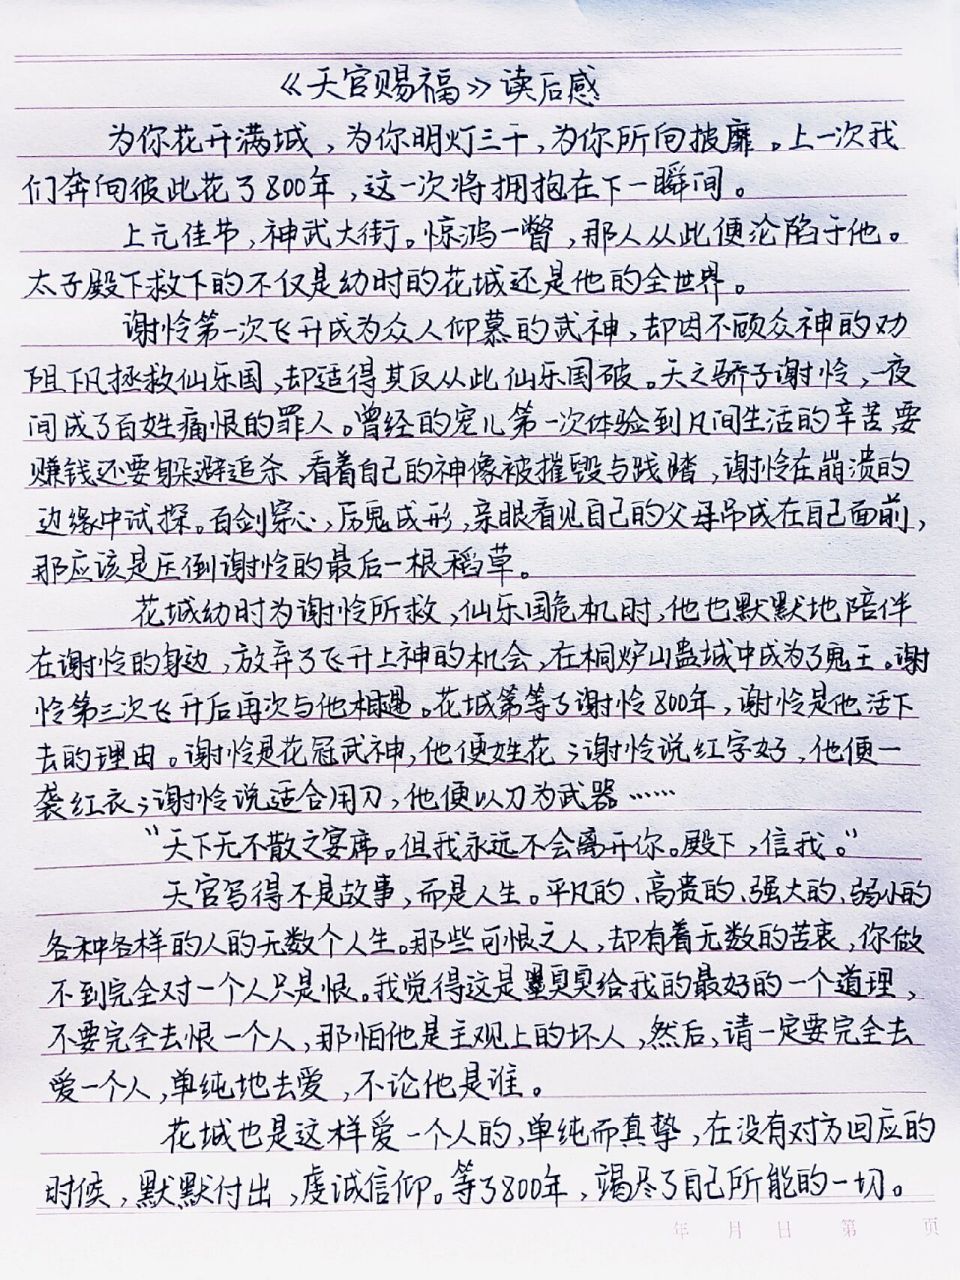 《天官赐福》读后感
为你花开满城，为你明灯三千，为你所向披靡。上一次我
们奔向彼此花了800年，这一次将拥抱在下一瞬间。
上元佳节，神武大街。惊鸿一瞥，那人从此便沦陷于他。
太子殿下救下的不仅是幼时的花城还是他的全世界。
谢怜第一次飞升成为众人仰慕的武神，却因不顾众神的劝
阻下凡拯救仙乐国，却适得其反从此仙乐国破。天之骄子谢怜，一夜
间成了百姓痛恨的罪人。曾经的宠儿第一次体验到凡间生活的辛苦，要
赚钱还要躲避追杀，看着自己的神像被摧毁与践踏，谢怜在崩溃的
边缘中试探。百剑穿心，厉鬼成形，亲眼看见自己的父母吊死在自己面前，
那应该是压倒谢怜的最后一根稻草。
花城幼时为谢怜所救，仙乐国危机时，他也默默地陪伴
在谢怜的身边，放弃了飞升上神的机会，在桐炉山蛊城中成为了鬼王。谢
怜第三次飞升后再次与他相遇。花城等了谢怜800年，谢怜是他活下
去的理由。谢怜是花冠武神，他便姓花；谢怜说红字好，他便一
袭红衣；谢怜说适合用刀，他便以刀为武器……
“天下无不散之宴席。但我永远不会离开你。殿下，信我。”
天官写得不是故事，而是人生。平凡的、高贵的、强大的、弱小的
各种各样的人的无数个人生。那些可恨之人，却有着无数的苦衷，你做
不到完全对一个人只是恨。我觉得这是墨臭臭给我的最好的一个道理，
不要完全去恨一个人，那怕他是主观上的坏人，然后，请一定要完全去
爱一个人，单纯地去爱，不论他是谁。
花城也是这样爱一个人的，单纯而真挚，在没有对方回应的
时候，默默付出，虔诚信仰。等了800年，竭尽了自己所能的一切。
年 月 日 第 页